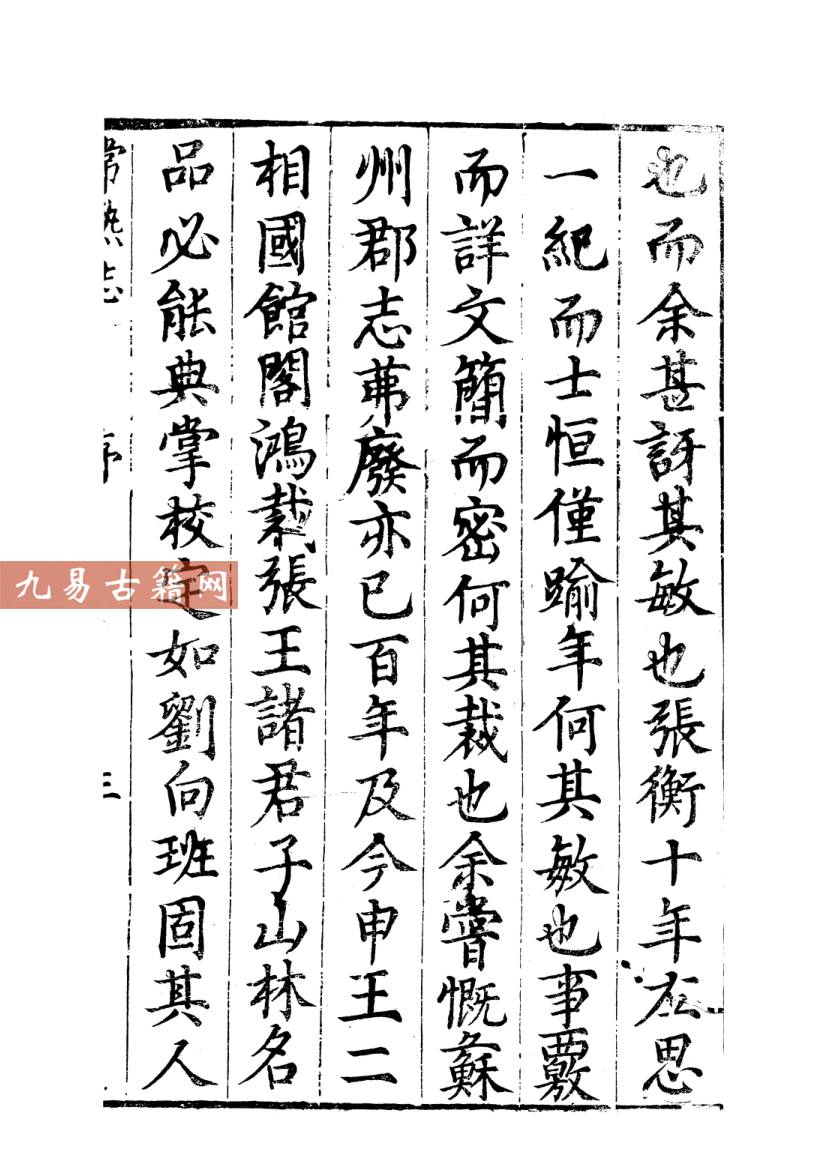 也而余甚訝其敏也張衡十年左思
一紀而士恒僅踰年何其敏也事覈
而詳文簡而密何其裁也余嘗慨蘇
州郡志茀廢亦已百年及今申王二
相國館閣鴻裁張王諸君子山林名
品必能典掌校定如劉向班固其人
常熟志 序 三
九易古籍网